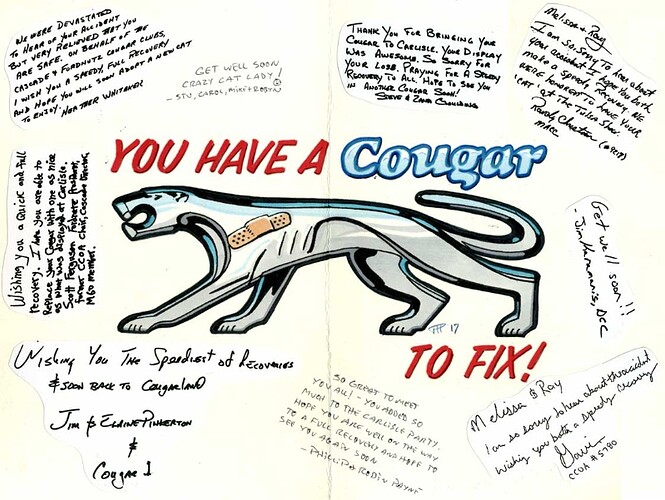 WE WERE DEVASTATED
TO HEAR OF YOUR ACCIDENT
BUT VERY RELIEVED THAT YOU
ARE SAFE. ON BEHALF OF THE
CASCADE & FORDNUTZ COUGAR CLUBS,
I WISH YOU A SPEEDY, FULL RECOVERY
AND HOPE YOU WILL SOON ADOPT A NEW CAT
TO ENJOY. HEATHER WHITAKER
GET WELL SOON
CRAZY CAT LADY!
- STU, CAROL, MIKE & ROBYN
THANK YOU FOR BRINGING YOUR
COUGAR TO CARLISLE. YOUR DISPLAY
WAS AWESOME. SO SORRY FOR
YOUR LOSS. PRAYING FOR A SPEEDY
RECOVERY TO ALL. HOPE TO SEE YOU
IN ANOTHER COUGAR SOON!
STEVE &
Melissa & Ray
I am so, sorry to hear about
your accident. I hope you both
make a speedy recovery. WE
WERE HONORED TO HAVE YOUR
'CAT' at The Tulsa Show.
Randy
YOU HAVE A Cougar
Wishing you a quick and full
recovery. I hope you are able to
Replace your Cougar with one as nice
as what was displayed at Carlisle.
Scott Ferguson, Fordnutz President,
former CCOA chair, Cascade Director,
M60 member.
Get well soon!!
- Jim Karamanis, DCC
HP 17
TO FIX!
WISHING YOU THE SPEEDIEST OF RECOVERIES
& SOON BACK TO COUGARLAND
JIM & ELAINE PINKERTON
&
COUGAR 1
SO GREAT TO MEET
YOU ALL! - YOU ADDED SO
MUCH TO THE CARLISLE PARTY.
HOPE YOU ARE WELL ON THE WAY
TO A FULL RECOVERY AND HOPE TO
SEE YOU AGAIN SOON
- PHILLIP & ROBIN PAYNE
Melissa & Ray
I am so sorry to hear about the accident
wishing you both a speedy recovery
Gavin
CCOA # 5790